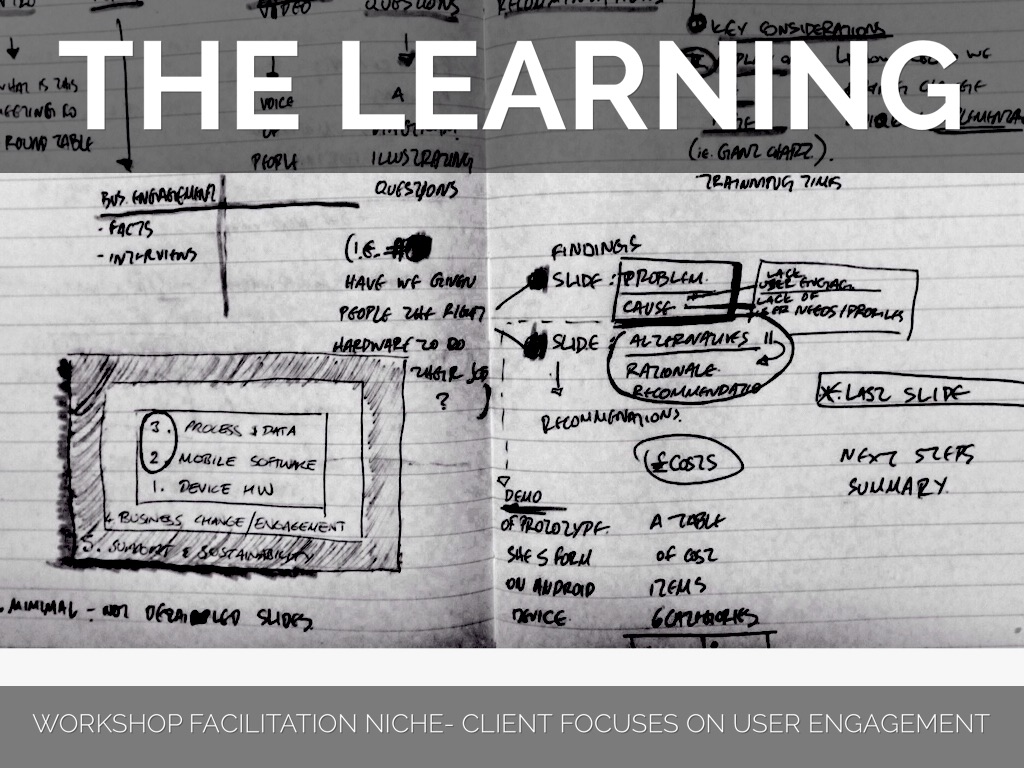 THE LEARNING
VIDEO
QUESTIONS
KEY CONSIDERATIONS
WHAT IS THIS
VOICE
A
ROUND TABLE
PEOPLE
ILLUSTRATING
QUESTIONS
(ie. GANT CHART).
TRAINING TIMES
BUS. ENGAGEMENT
- FACTS
- INTERVIEWS
(I.E.
HAVE WE GIVEN
PEOPLE THE RIGHT
HARDWARE TO DO
THEIR JOB
?
3. PROCESS & DATA
2. MOBILE SOFTWARE
1. DEVICE HW
4. BUSINESS CHANGE/ENGAGEMENT
5. SUPPORT & SUSTAINABILITY
MINIMAL - NOT DETAILED SLIDES.
FINDINGS
SLIDE : PROBLEM
CAUSE
LACK
USER ENGAG.
LACK OF
USER NEEDS/PROFILES
SLIDE : ALTERNATIVES
RATIONALE
RECOMMENDATION
RECOMMENATIONS.
*. LAST SLIDE
NEXT STEPS
SUMMARY.
£COSTS
DEMO
OF PROTOTYPE.
SHE'S FORM
ON ANDROID
DEVICE.
A TABLE
OF COST
ITEMS
6 CATEGORIES
WORKSHOP FACILITATION NICHE- CLIENT FOCUSES ON USER ENGAGEMENT